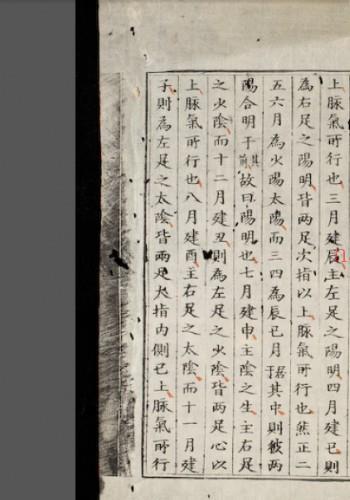 上脉氣所行也三月建辰主左足之陽明四月建巳則
為右足之陽明皆兩足次指以上脉氣所行也然正二
五六月為少陽太陽而三四為辰巳月居于其中則彼兩
陽合明于其前故曰陽明也七月建申主陰之生主右足
之少陰而十二月建丑則為左足之少陰皆兩足心以
上脉氣所行也八月建酉主右足之太陰而十一月建
子則為左足之太陰皆兩足大指内側已上脉氣所行